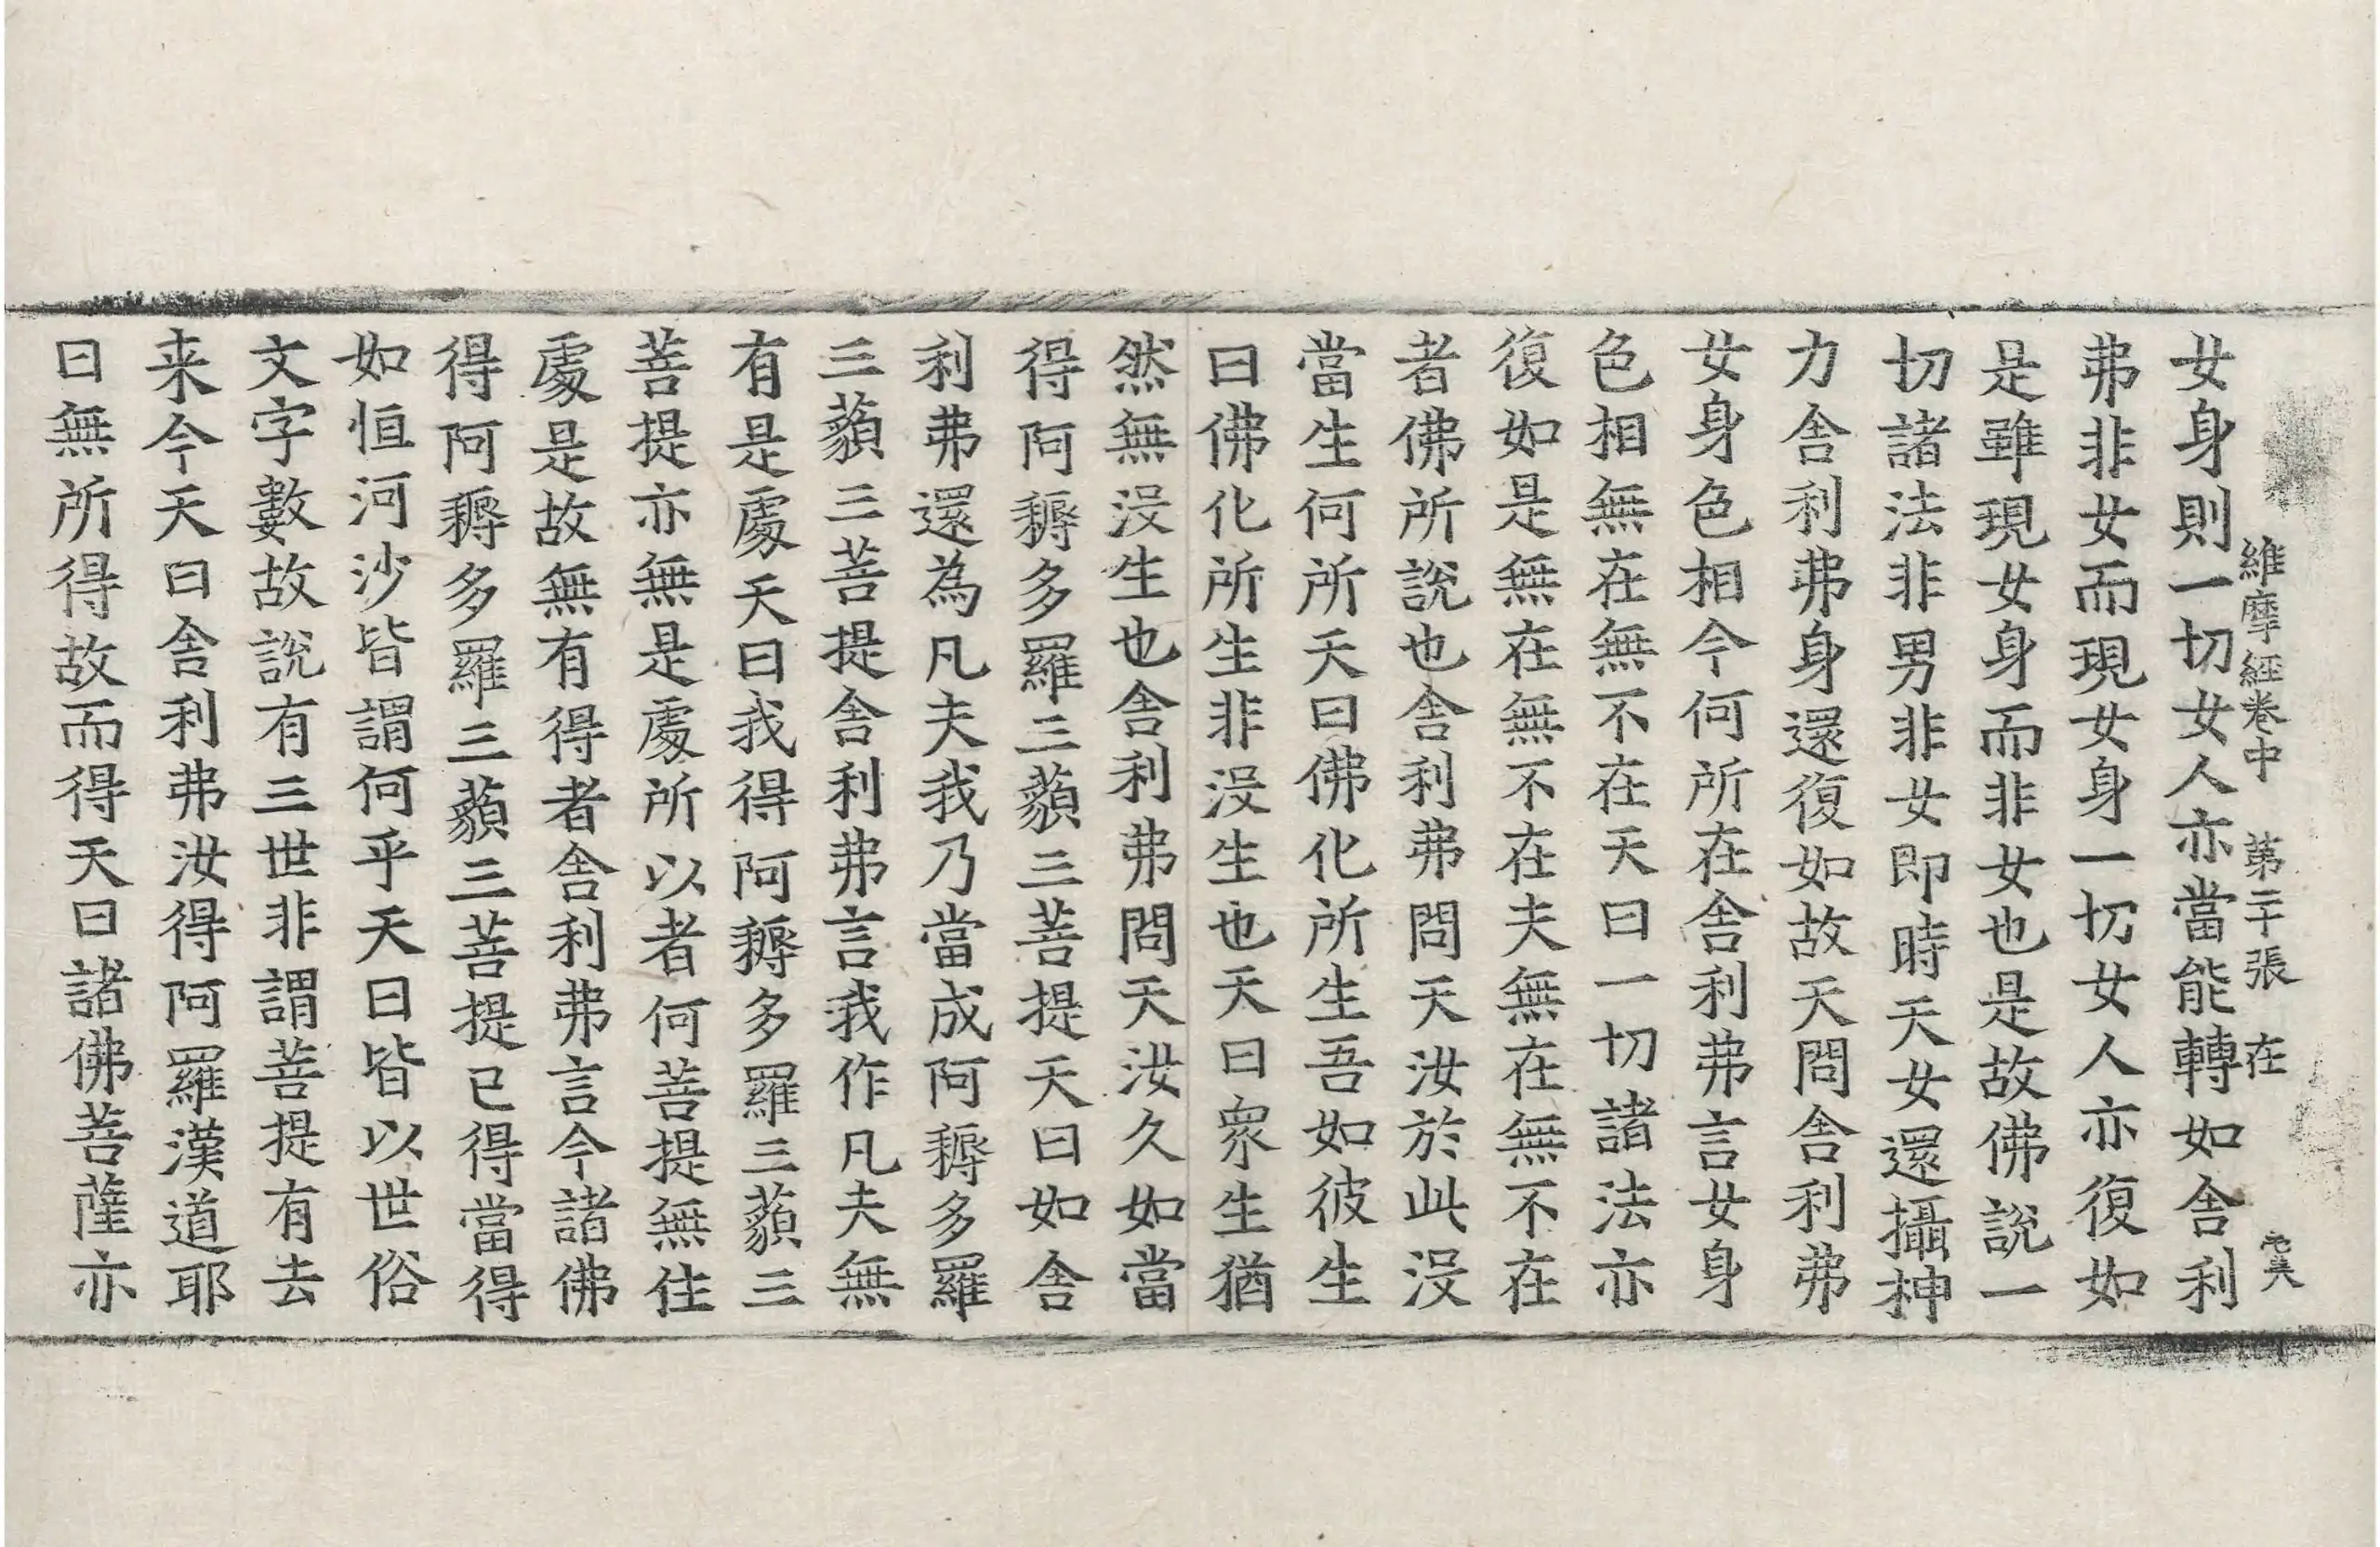 維摩經卷中 第二十張 在
女身則一切女人亦當能轉如舍利
弗非女而現女身一切女人亦復如
是雖現女身而非女也是故佛說一
切諸法非男非女即時天女還攝神
力舍利弗身還復如故天問舍利弗
女身色相今何所在舍利弗言女身
色相無在無不在天曰一切諸法亦
復如是無在無不在夫無在無不在
者佛所說也舍利弗問天汝於此沒
當生何所天曰佛化所生吾如彼生
曰佛化所生非沒生也天曰衆生猶
然無沒生也舍利弗問天汝久如當
得阿耨多羅三藐三菩提天曰如舍
利弗還為凡夫我乃當成阿耨多羅
三藐三菩提舍利弗言我作凡夫無
有是處天曰我得阿耨多羅三藐三
菩提亦無是處所以者何菩提無住
處是故無有得者舍利弗言今諸佛
得阿耨多羅三藐三菩提已得當得
如恒河沙皆謂何乎天曰皆以世俗
文字數故說有三世非謂菩提有去
来今天曰舍利弗汝得阿羅漢道耶
曰無所得故而得天曰諸佛菩薩亦